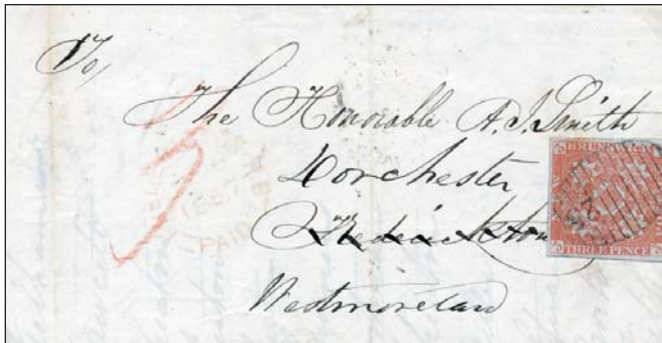 To,
The Honorable A. J. Smith
Dorchester
Fredericton
Westmoreland
3
PAID
BRUNSWICK
THREE PENCE